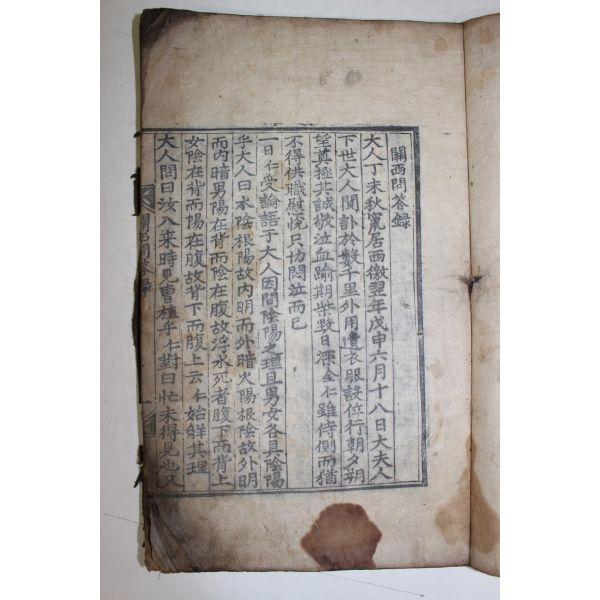 關西問答錄
大人丁未秋竄居西徼翌年戊申六月十八日大夫人
下世大人聞訃於數千里外用遺衣服設位行朝夕朔
望奠極其誠敬泣血踰期柴毁日深全仁雖侍側而猶
不得供職慰悅只切悶泣而已
一日仁受論語于大人因問陰陽之理且男女各具陰陽
乎大人曰水陰根陽故內明而外暗火陽根陰故外明
而內暗男陽在背而陰在腹故浮水死者腹下而背上
女陰在背而陽在腹故背下而腹上云仁始鮮其理
大人問曰汝入來時見曹植乎仁對曰忙未得見也又
關西問答錄
一